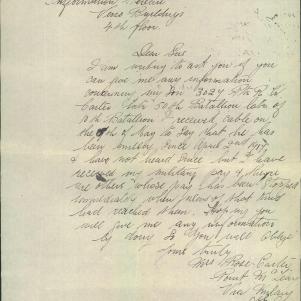 Information Bureau
Pirie Buildings
4th floor
Dear Sir
I am writing to ask you if you
can give me any information
concerning my Son 3027 Pte
Carter 50th Battalion late of
10th Battalion I received cable on
the of May to say that he has
been missing since April 2nd 1917
& have not heard since but I have
received my military pay & there
are others whose pay has been stopped
immediately when news of that kind
had reached them. Hoping you
will give me any information
by doing so you will oblige
Yours truly
Mrs Rose Carter
Point
Via